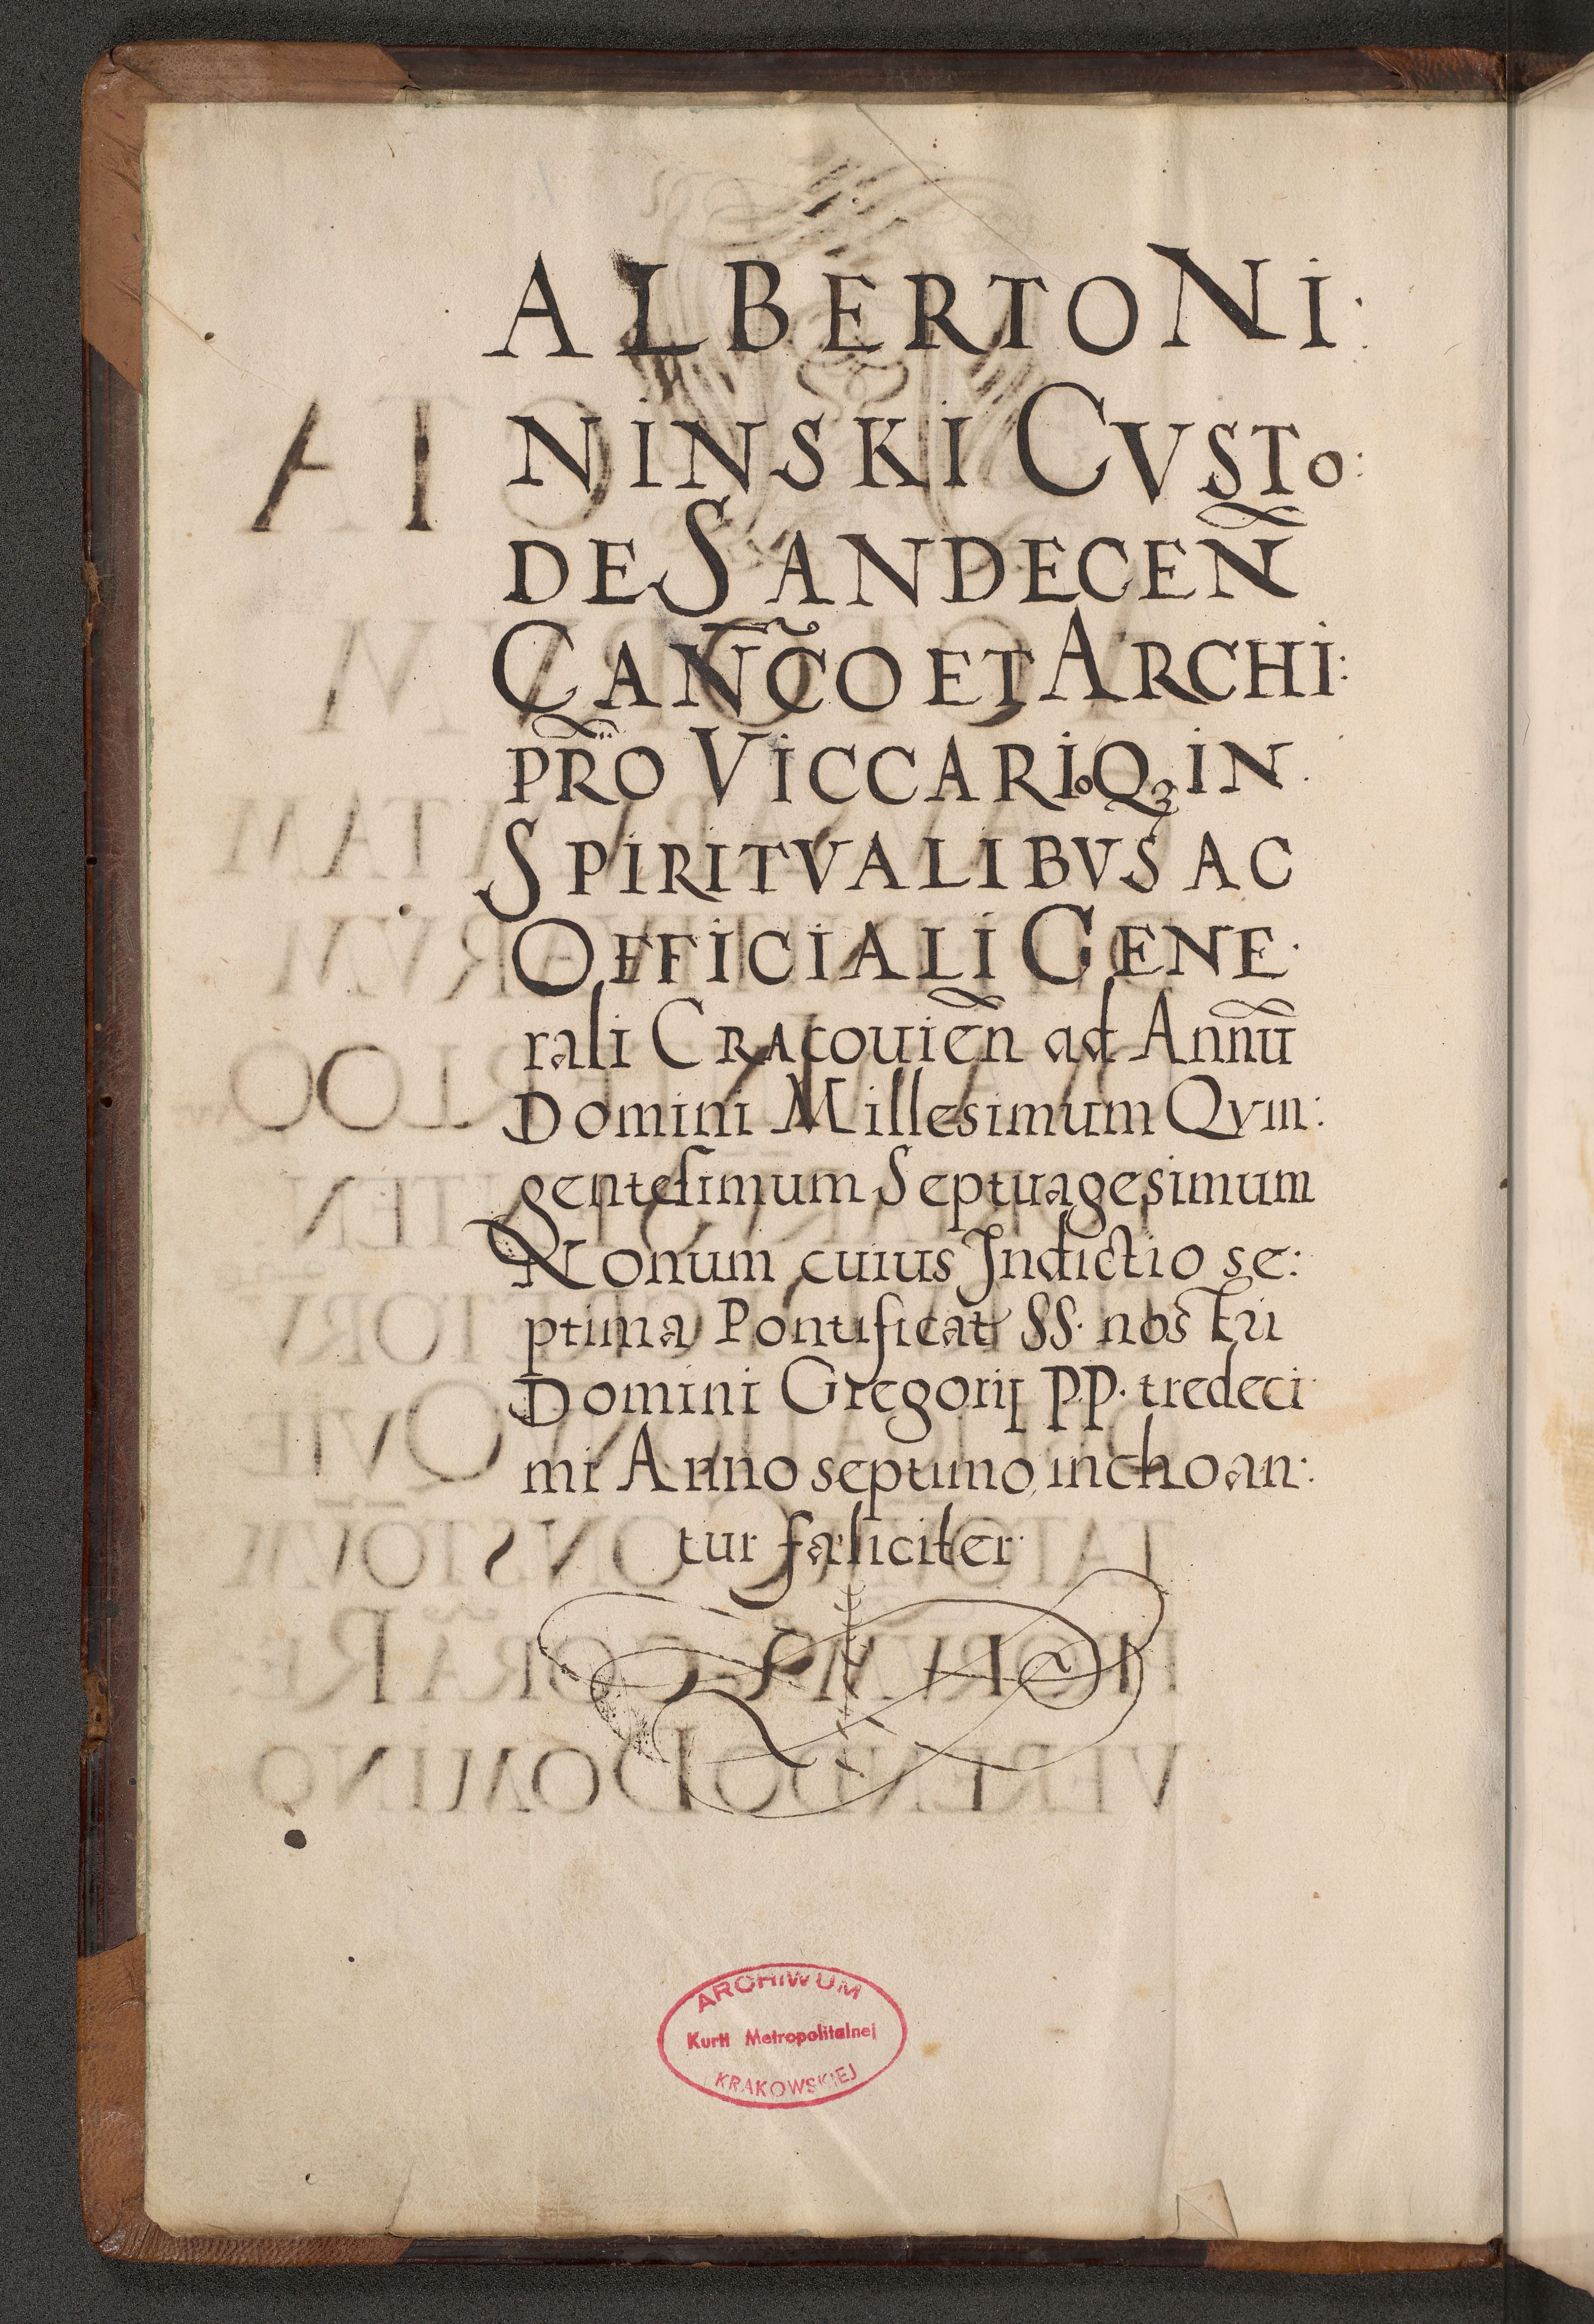 ALBERTO NI:
NINSKI CVSTO:
DE SANDECEÑ
CAN̄C̃O ET ARCHI:
PR̃O VICCARIOQꝫ IN
SPIRITVALIBVS AC
OFFICIALI GENE
rali CRACouieñ ad Annũ
Domini Millesimum Qvin:
gentesimum Septuagesimum
Nonum cuius Indictio se:
ptima Pontificat SS. nostri
Domini Gregorij PP. tredeci
mi Anno septimo inchoan:
tur fæliciter
ARCHIWUM
Kurii Metropolitalnej
KRAKOWSKIEJ